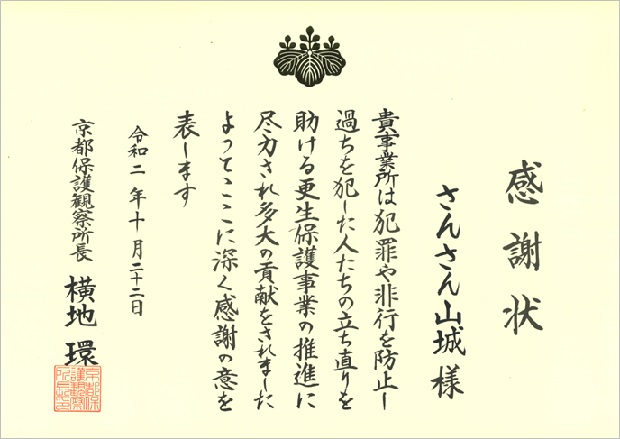 感謝状
さんさん山城様
貴事業所は犯罪や非行を防止し
過ちを犯した人たちの立ち直りを
助ける更生保護事業の推進に
尽力され多大の貢献をされました
よってここに深く感謝の意を
表します
令和二年十月二十二日
京都保護観察所長 横地 環